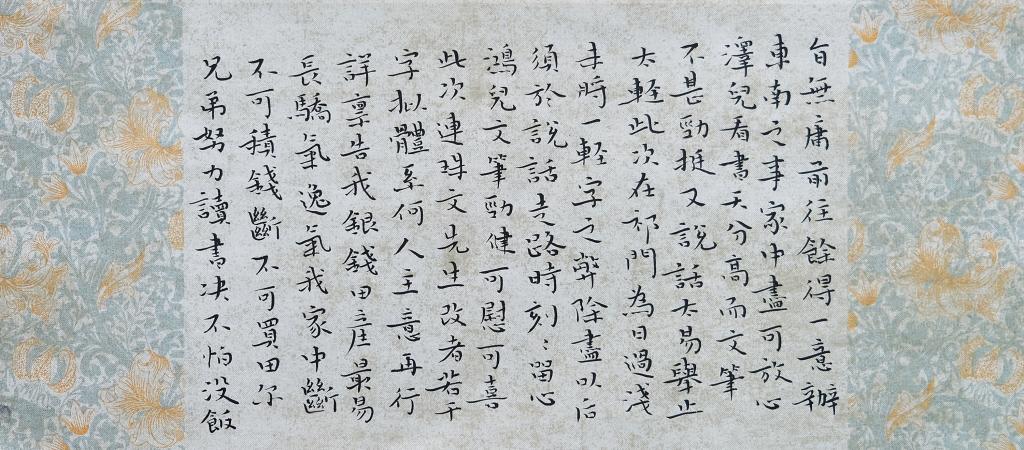 旨無庸前往餘得一意辦
東南之事家中盡可放心
澤兒看書天分高而文筆
不甚勁挺又說話太易舉止
太輕此次在祁門為日過淺
未時一輕字之弊除盡以后
須於說話走路時刻々留心
鴻兒文筆勁健可慰可喜
此次連珠文先生改者若干
字拟體系何人主意再行
詳稟告我銀錢田產最易
長驕氣逸氣我家中斷
不可積錢斷不可買田尔
兄弟努力讀書决不怕没飯